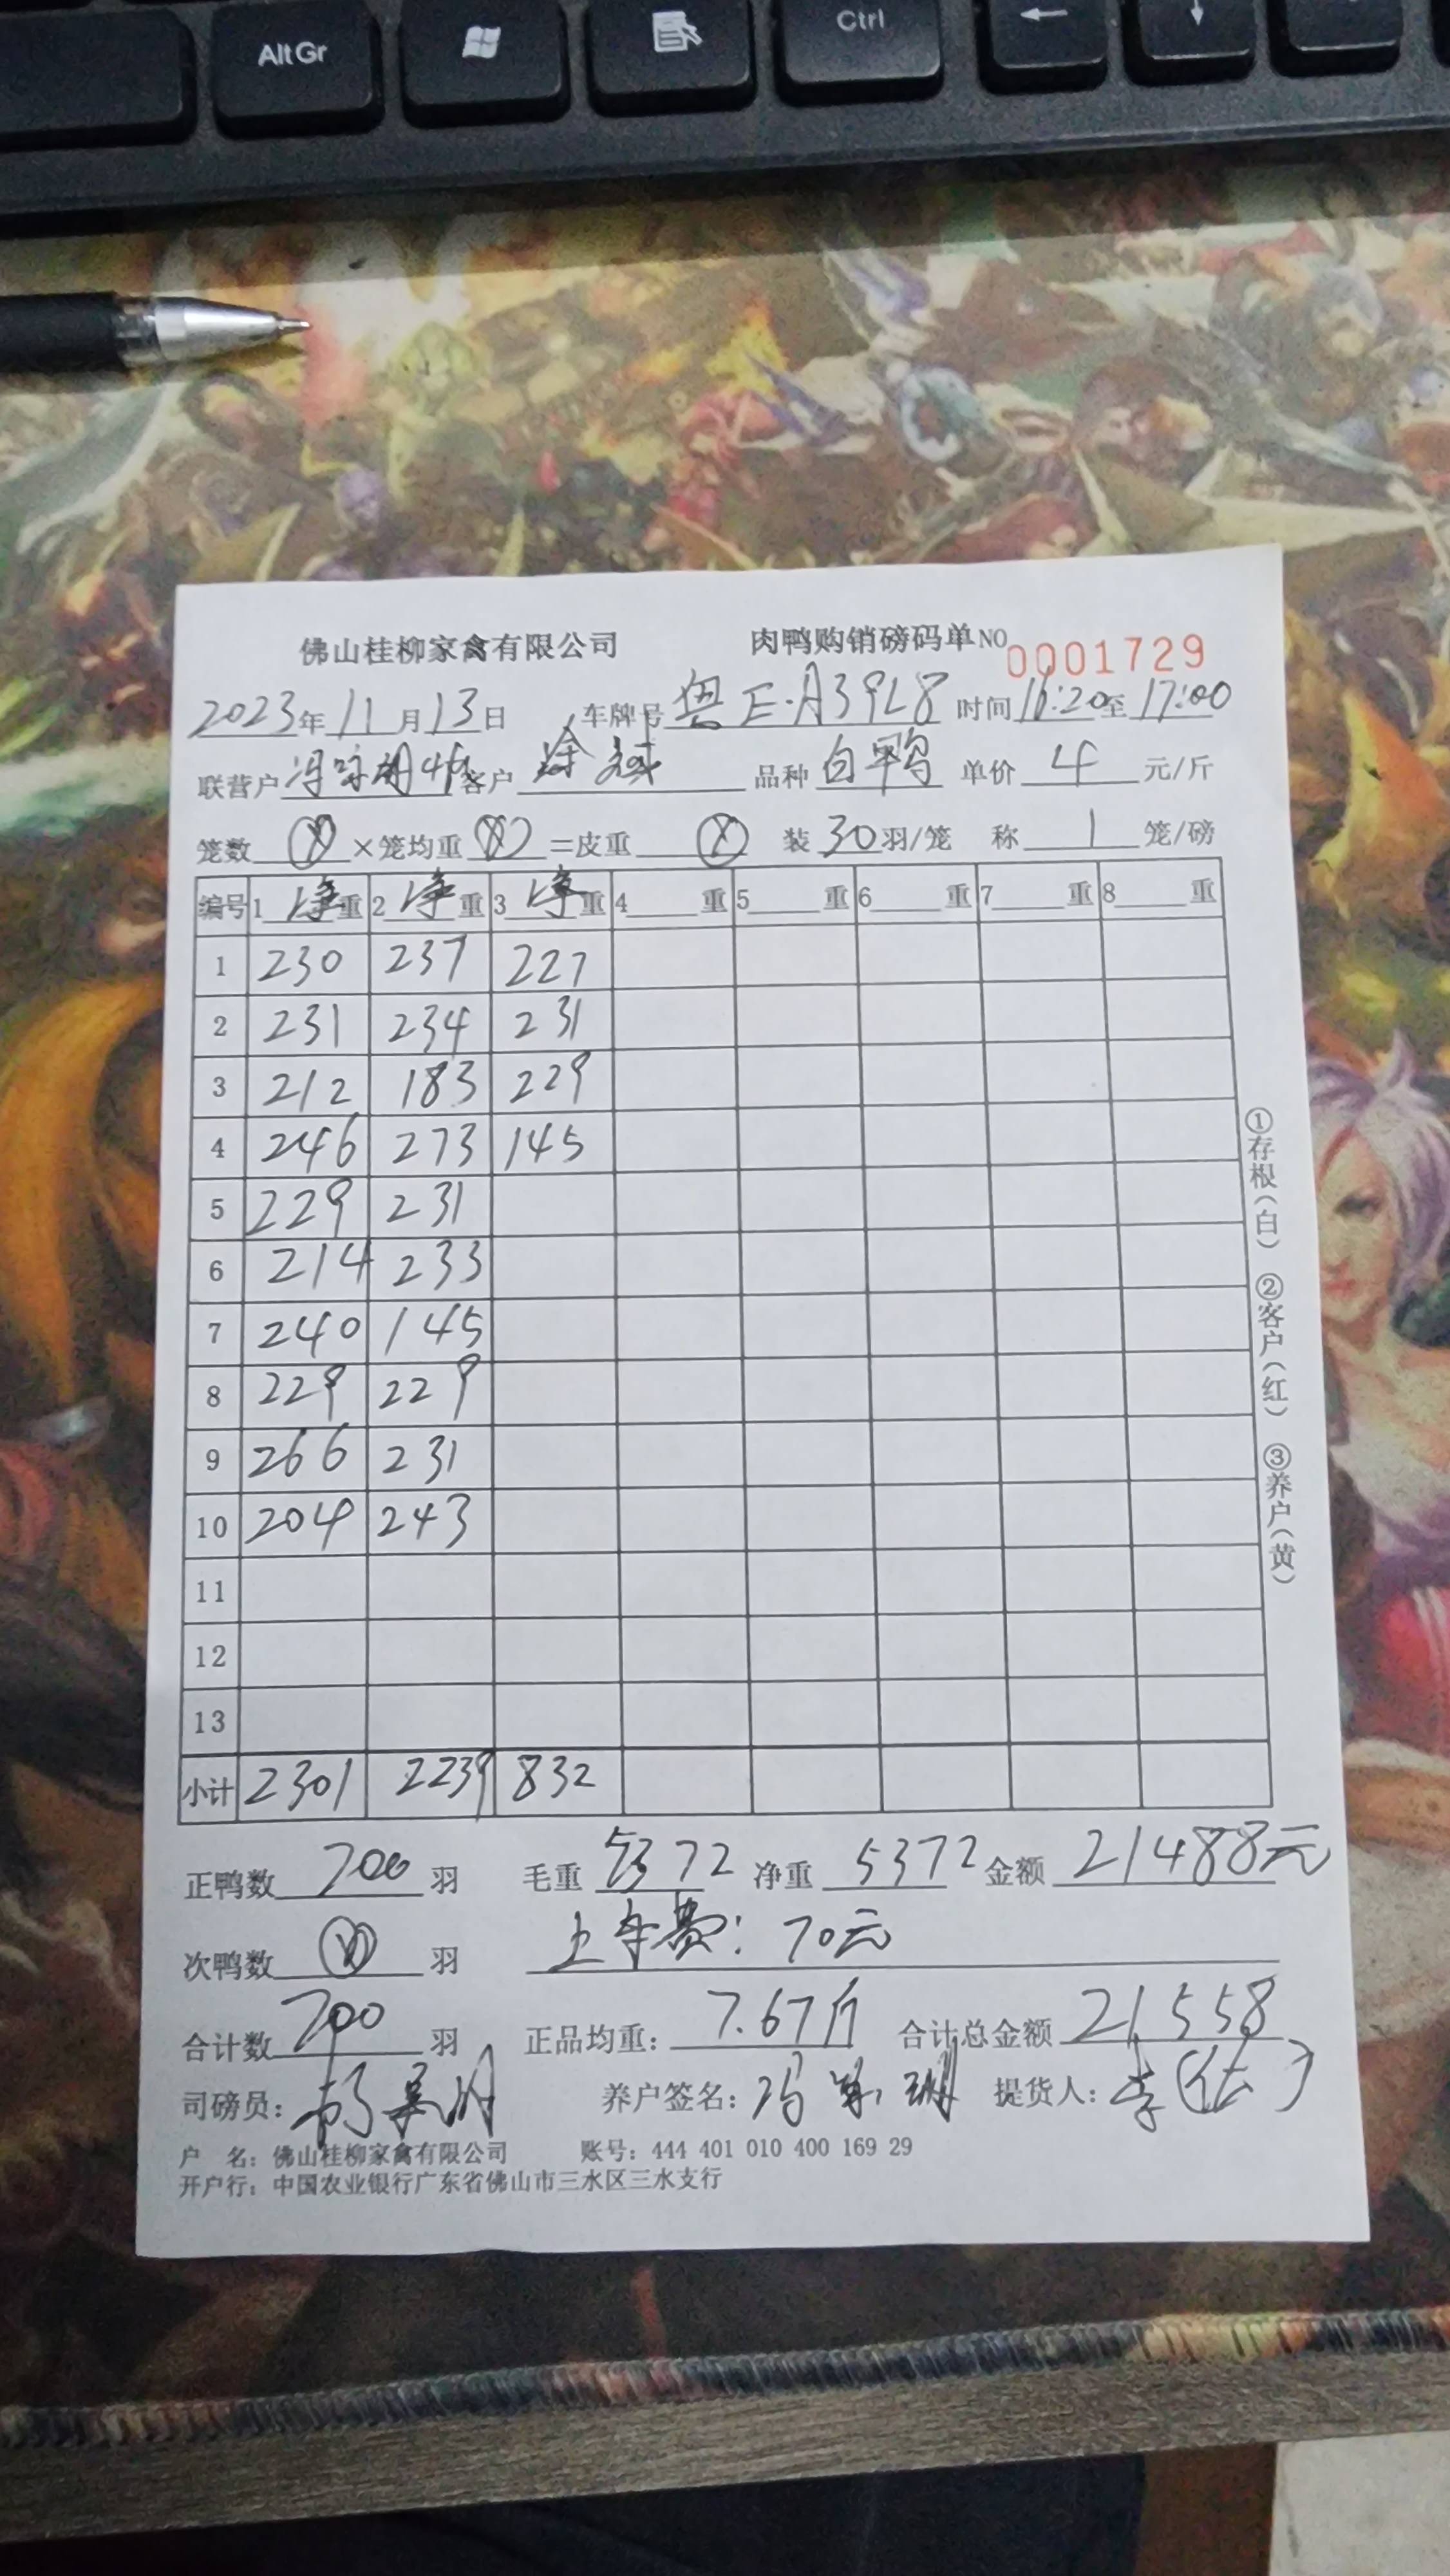 Alt Gr
Ctrl
佛山桂柳家禽有限公司 肉鸭购销磅码单 NO 0001729
2023年11月13日 车牌号 粤E·A39L8 时间 16:20至17:00
联营户 客户 品种 白鸭 单价 4 元/斤
笼数 ×笼均重 =皮重 装 30 羽/笼 称 1 笼/磅
编号 1 净重 2 净重 3 净重 4 重 5 重 6 重 7 重 8 重
1 230 237 227
2 231 234 231
3 212 183 229
4 246 273 145
5 229 231
6 214 233
7 240 145
8 229 229
9 266 231
10 204 243
11
12
13
小计 2301 2239 832
正鸭数 700 羽 毛重 5372 净重 5372 金额 21488元
次鸭数 羽 上车费：70元
合计数 700 羽 正品均重： 7.67斤 合计总金额 21558
司磅员： 养户签名：冯 提货人：李
户 名：佛山桂柳家禽有限公司 账号：444 401 010 400 169 29
开户行：中国农业银行广东省佛山市三水区三水支行
①存根（白） ②客户（红） ③养户（黄）